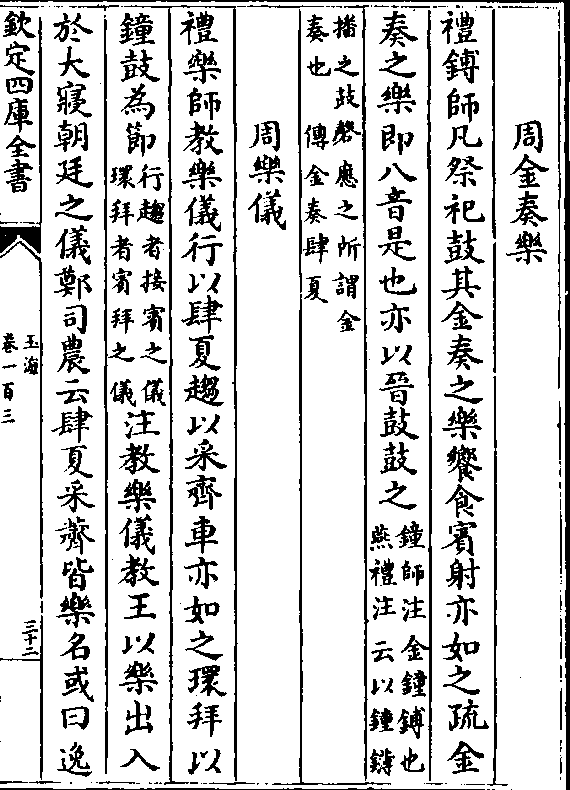 周金奏樂
禮鎛師凡祭祀鼓其金奏之樂饗食賓射亦如之疏金
奏之樂即八音是也亦以晉鼓鼓之鐘師注金鐘鎛也燕禮注云以鐘鎛
播之鼓磬應之所謂金奏也傳金奏肆夏
周樂儀
禮樂師教樂儀行以肆夏趨以采齊車亦如之環拜以
鐘鼓為節行趨者接賓之儀環拜者賓拜之儀注教樂儀教王以樂出入
於大寢朝廷之儀鄭司農云肆夏采薺皆樂名或曰逸
欽定四庫全書
玉海
卷一百三
三十二